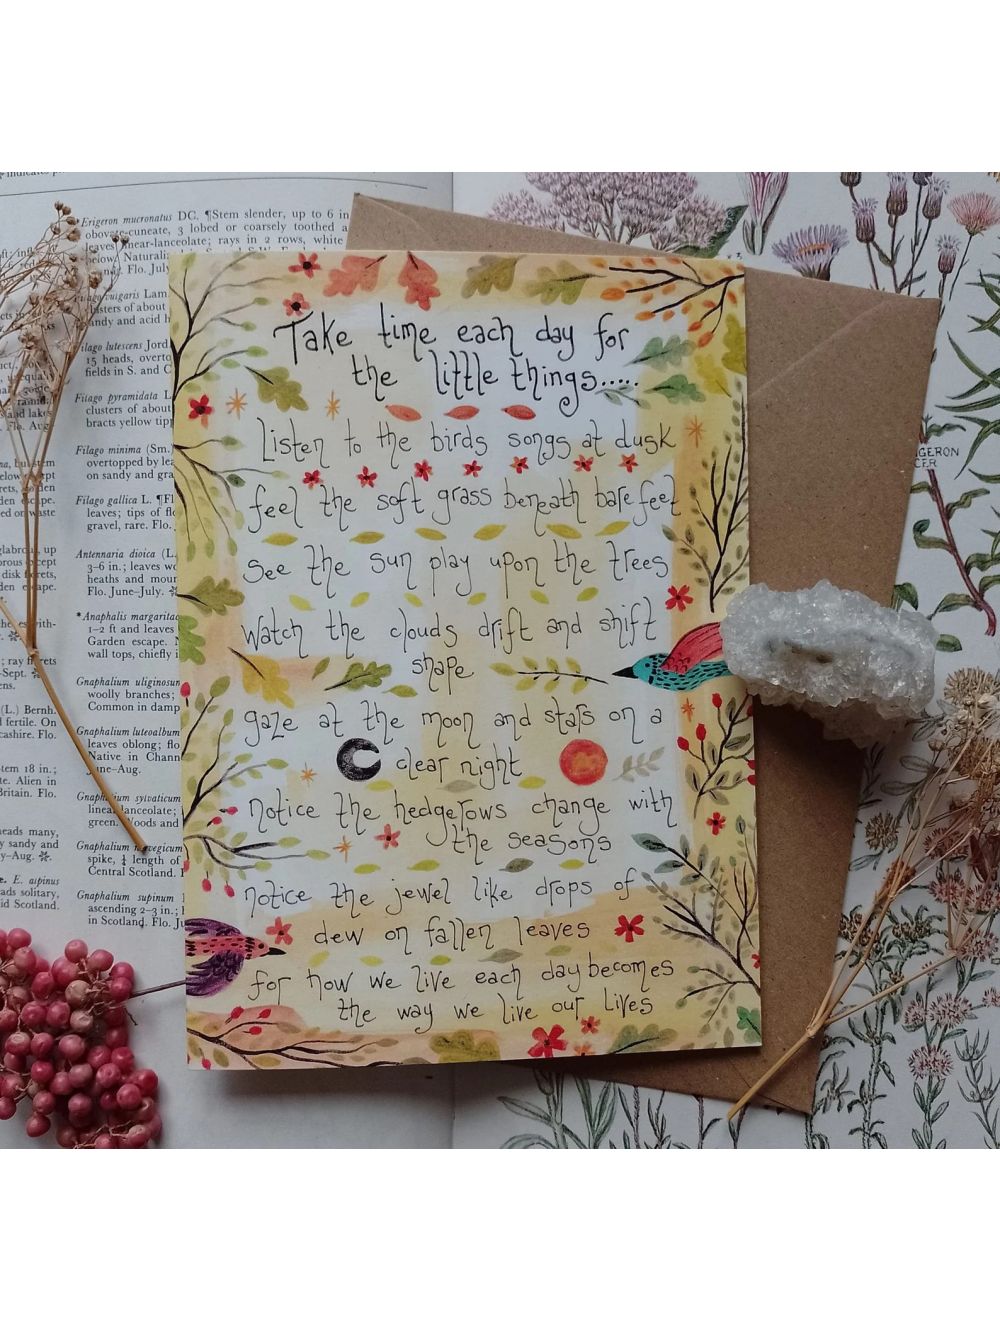 Take time each day for
the little things.....
Listen to the birds songs at dusk
feel the soft grass beneath bare feet
See the sun play upon the trees
Watch the clouds drift and shift
shape
gaze at the moon and stars on a
clear night
notice the hedgerows change with
the seasons
notice the jewel like drops of
dew on fallen leaves
for how we live each day becomes
the way we live our lives
Erigeron mucronatus DC. ¶Stem slender, up to 6 in
obovate-cuneate, 3 lobed or coarsely toothed a
leaves linear-lanceolate; rays in 2 rows, white
below. Naturali
Flo. July
Filago vulgaris Lam
clusters of about
sandy and acid h
Filago lutescens Jord
15 heads, overto
fields in S. and C
Filago pyramidata L.
clusters of about
bracts yellow tipp
Filago minima (Sm.)
overtopped by lea
on sandy and gra
Filago gallica L. ¶Fl
leaves; tips of flo
gravel, rare. Flo.
Antennaria dioica (L.
3-6 in.; leaves wo
heaths and moun
Flo. June-July.
*Anaphalis margaritac
1-2 ft and leaves
Garden escape. N
wall tops, chiefly i
Gnaphalium uliginosum
woolly branches;
Common in damp
Gnaphalium luteoalbum
leaves oblong; flo
Native in Chann
June-Aug.
Gnaphalium sylvaticum
linear lanceolate;
green. Woods and
Gnaphalium norvegicum
spike, ¼ length of
Central Scotland. F
Gnaphalium supinum
ascending 2-3 in.;
in Scotland. Flo. Ju
(L.) Bernh.
fertile. On
cashire. Flo.
stem 18 in.;
te. Alien in
Britain. Flo.
heads many,
y sandy and
y-Aug.
e. E. aspinus
ads solitary,
id Scotland.
IGERON
CER